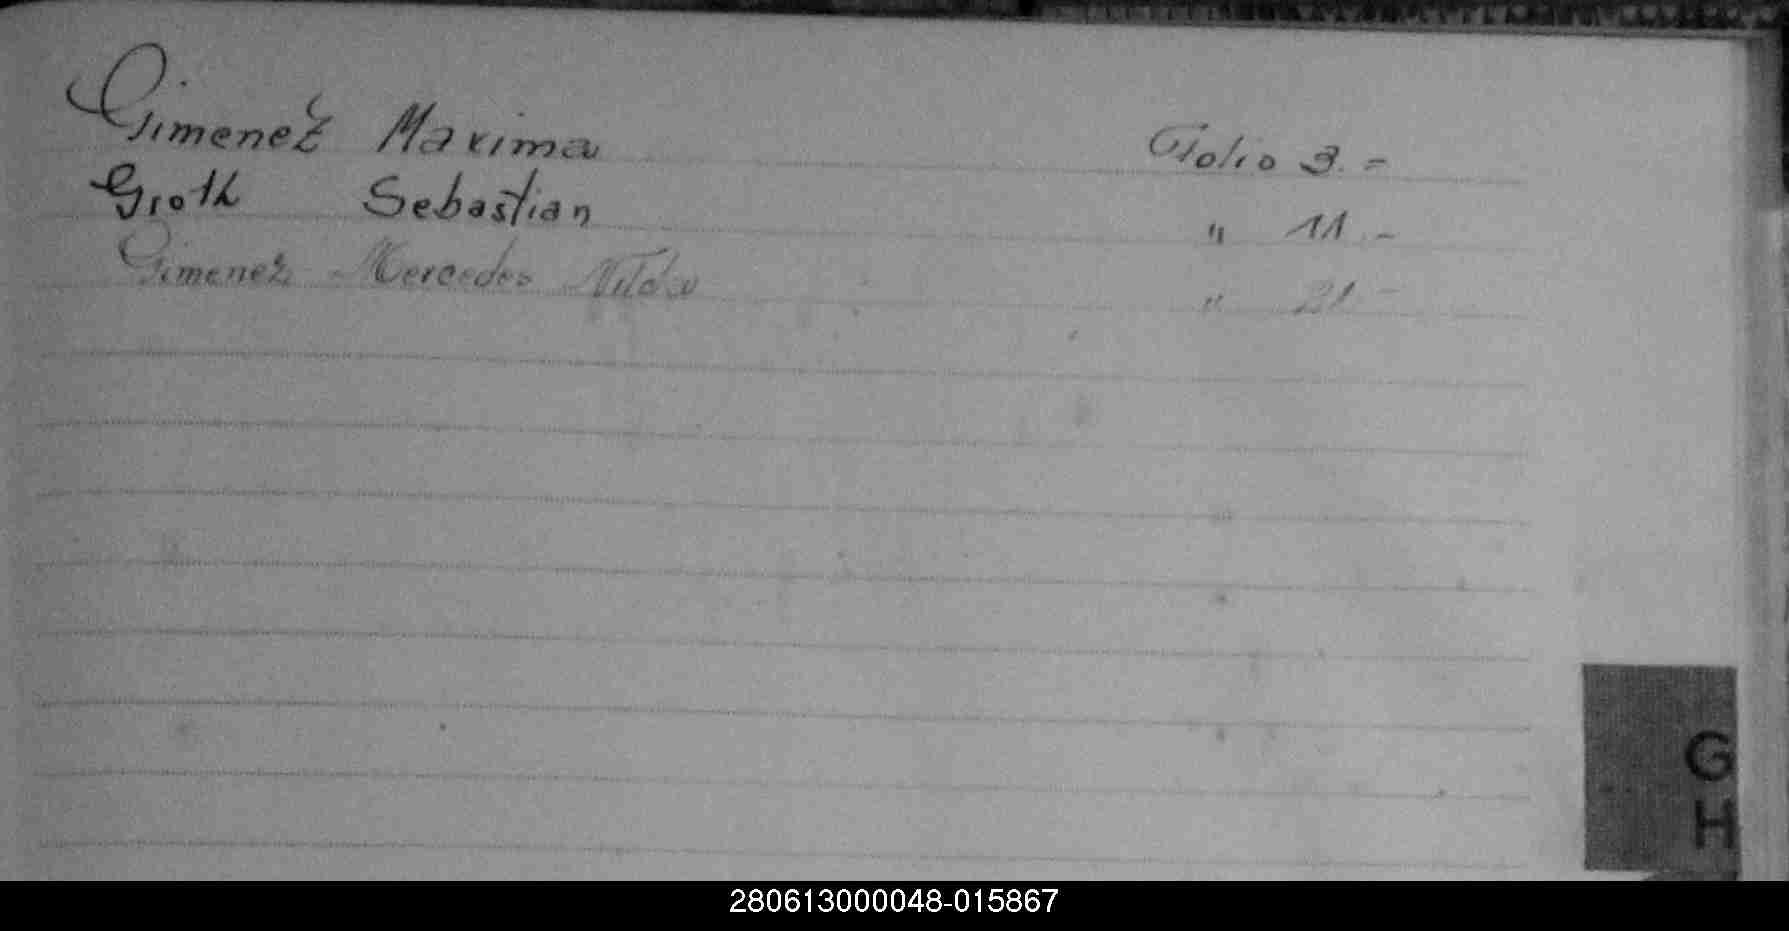 Gimenez Maxima Folio 3.=
Groth Sebastian " 11.-
Gimenez Mercedes Nilda " 21.-
G
H
280613000048-015867